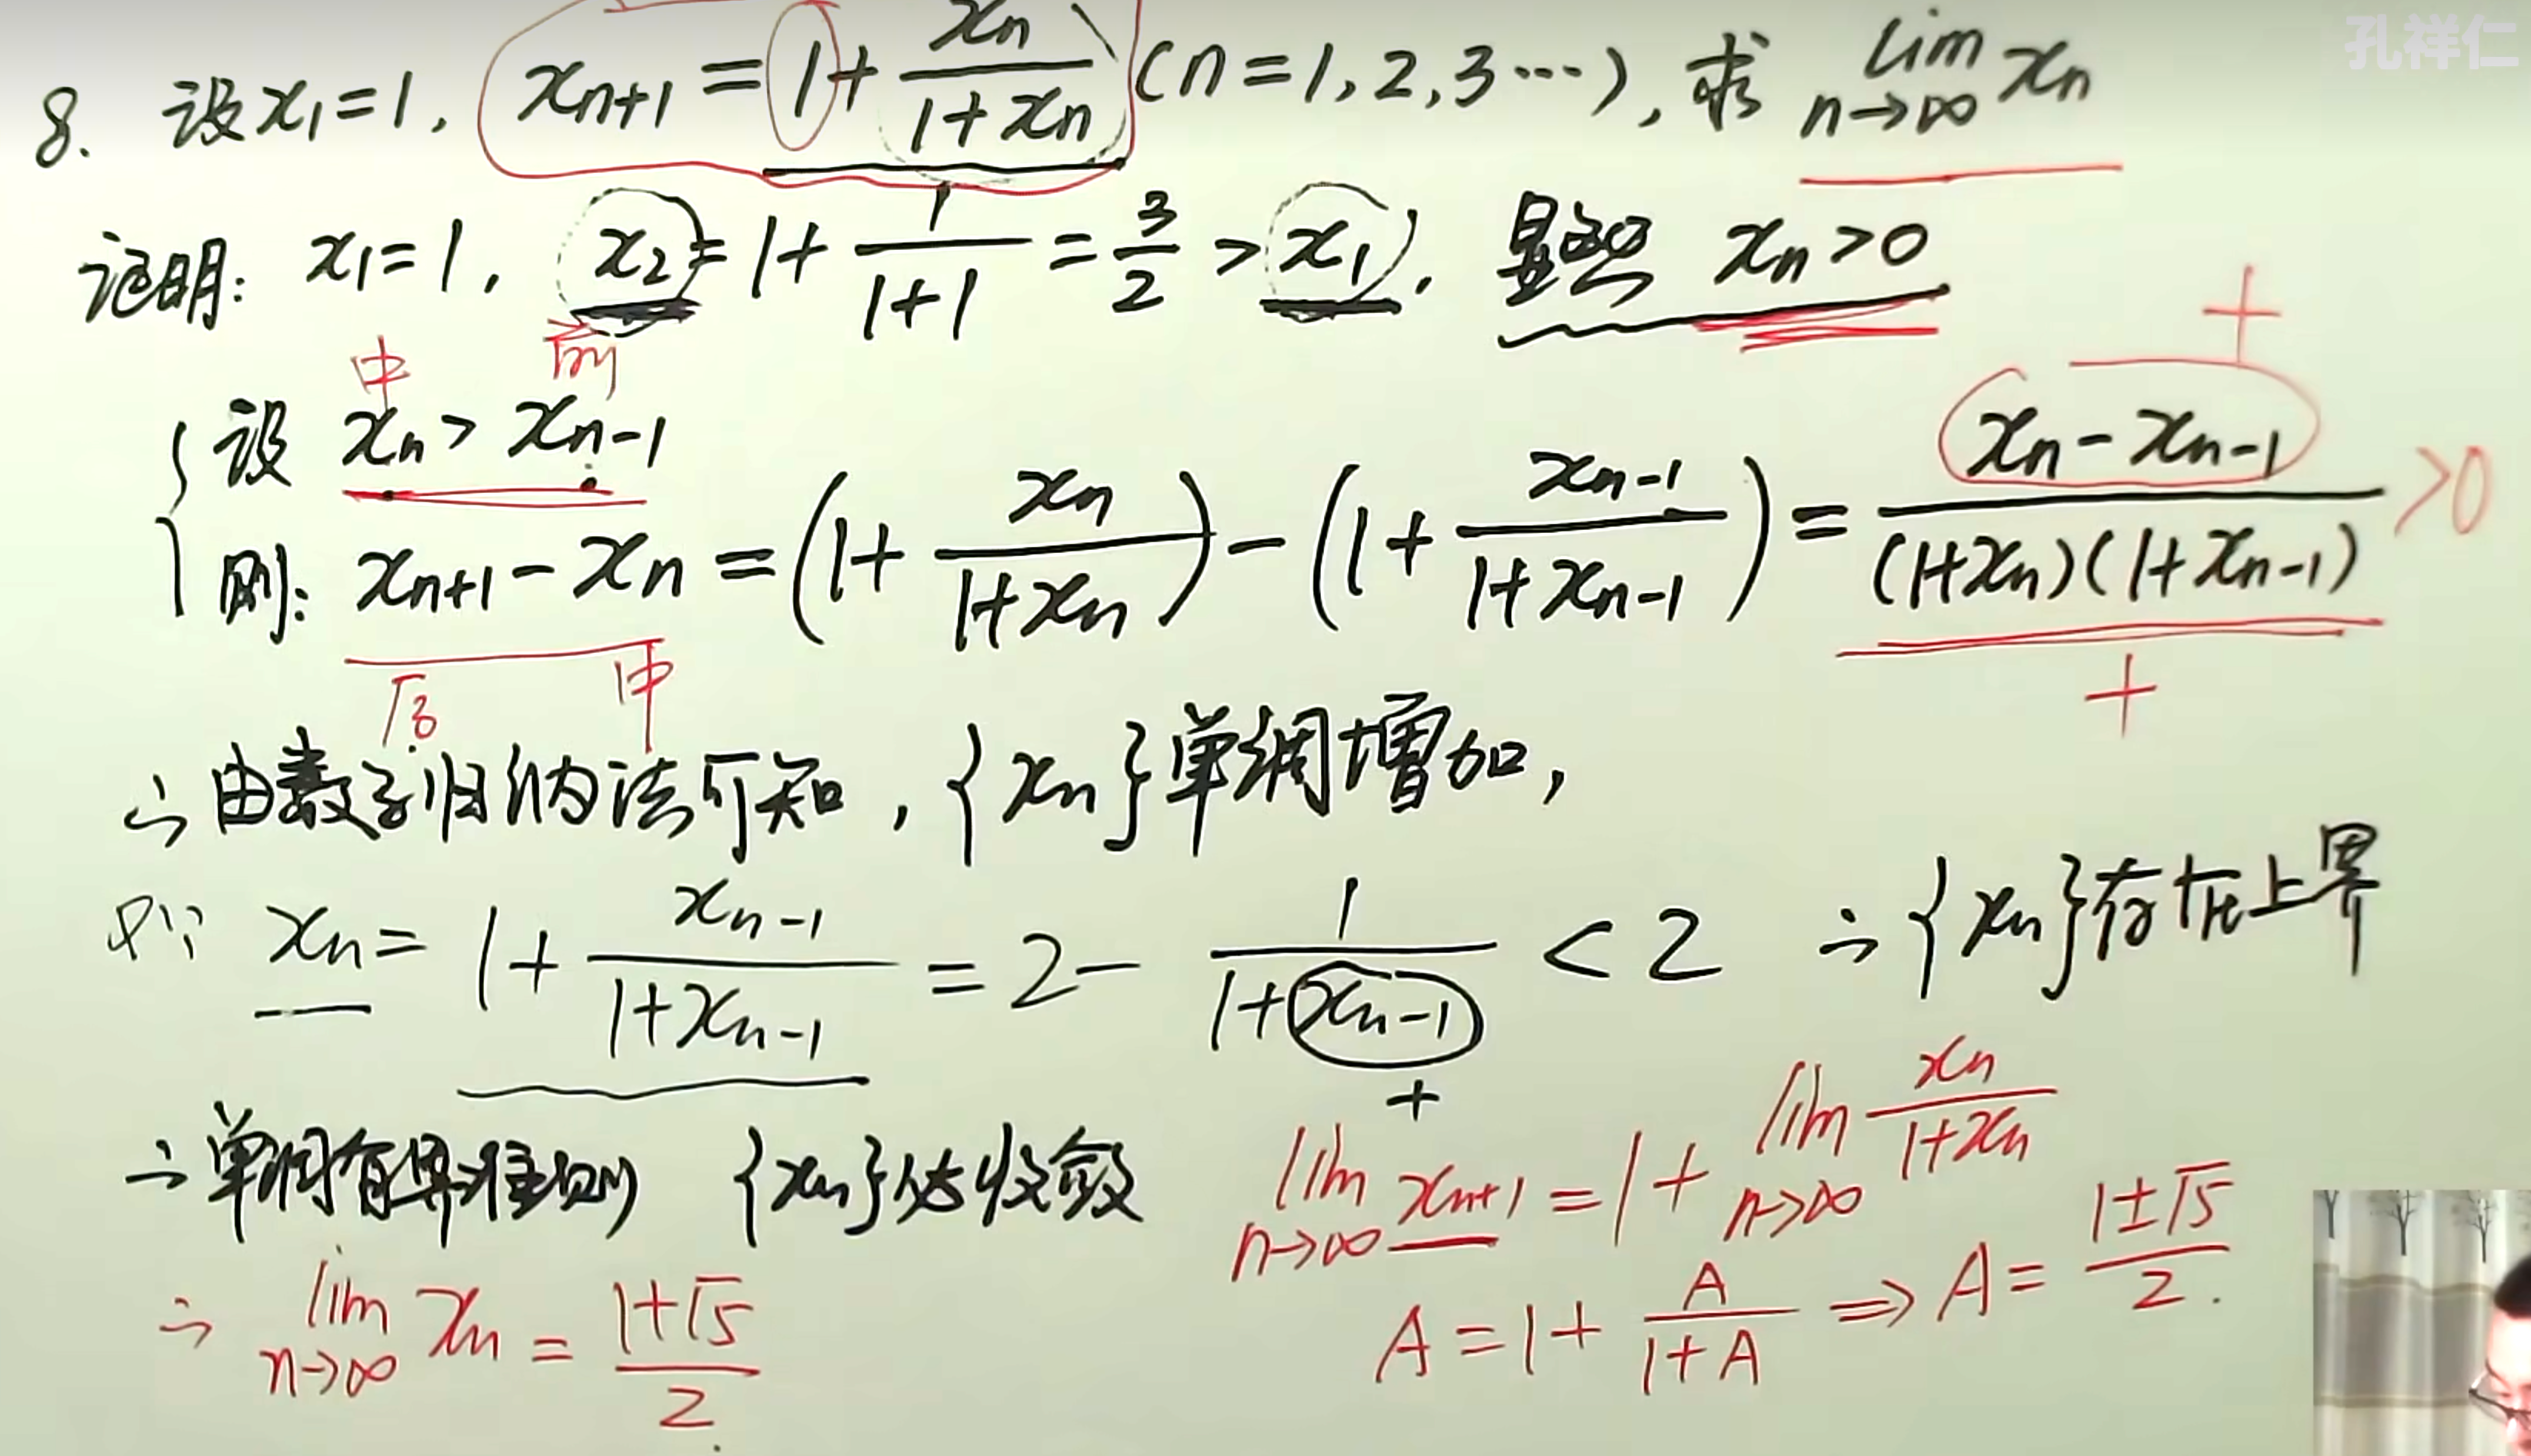 孔祥仁
8. 设 x₁=1, xₙ₊₁ = 1 + xₙ/(1+xₙ) (n=1,2,3…), 求 lim_{n→∞} xₙ
证明: x₁=1, x₂ = 1 + 1/(1+1) = 3/2 > x₁. 显然 xₙ>0
中 前 +
设 xₙ > xₙ₋₁
则: xₙ₊₁ - xₙ = (1 + xₙ/(1+xₙ)) - (1 + xₙ₋₁/(1+xₙ₋₁)) = (xₙ - xₙ₋₁)/((1+xₙ)(1+xₙ₋₁)) >0
后 中 +
∴ 由数学归纳法可知, {xₙ}单调增加,
又∵ xₙ = 1 + xₙ₋₁/(1+xₙ₋₁) = 2 - 1/(1+xₙ₋₁) < 2 ∴ {xₙ}存在上界
+
∴ 单调有界准则 {xₙ}必收敛
lim_{n→∞} xₙ₊₁ = 1 + lim_{n→∞} xₙ/(1+xₙ)
A = 1 + A/(1+A) ⇒ A = (1±√5)/2.
∴ lim_{n→∞} xₙ = (1+√5)/2.